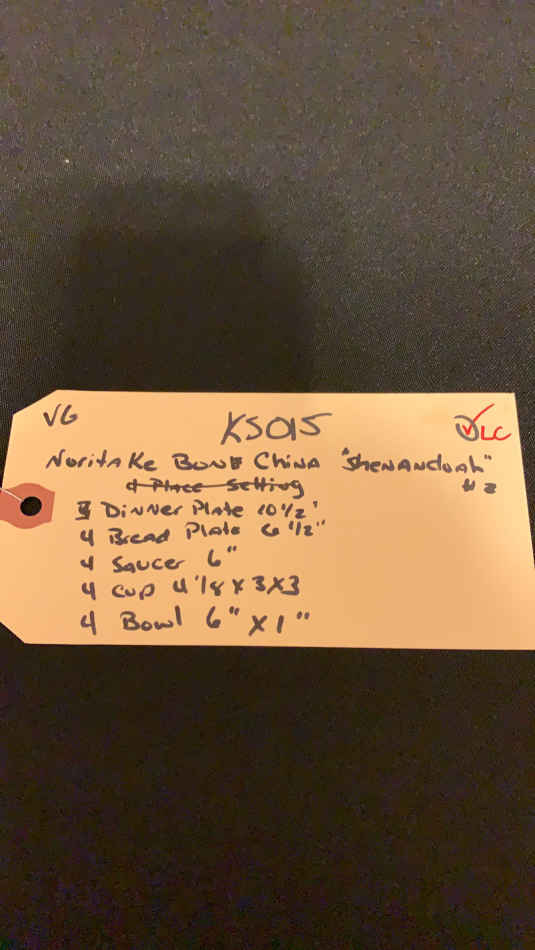 VG KS015 LC
Noritake Bone China "Shenandoah"
4 Place Setting # 2
Dinner Plate 10 1/2"
4 Bread Plate 6 1/2"
4 Saucer 6"
4 Cup 4 1/8 X 3 X 3
4 Bowl 6" X 1"